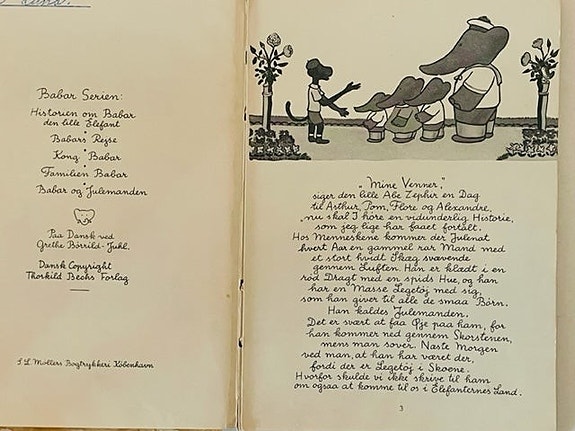 Babar Serien:
Historien om Babar
den lille Elefant
Babars Rejse
Kong Babar
Familien Babar
Babar og Julemanden
Paa Dansk ved
Grethe Börsild-Juhl.
Dansk Copyright
Thorkild Bechs Forlag
S. L. Möllers Bogtrykkeri København
„Mine Venner,"
siger den lille Abe Zephir en Dag
til Arthur, Pom, Flore og Alexandre,
„nu skal I höre en vidunderlig Historie,
som jeg lige har faaet fortalt.
Hos Menneskene kommer der Julenat
hvert Aar en gammel rar Mand med
et stort hvidt Skæg svævende
gennem Luften. Han er klædt i en
röd Dragt med en spids Hue, og han
har en Masse Legetöj med sig,
som han giver til alle de smaa Börn.
Han kaldes Julemanden.
Det er svært at faa Øje paa ham, for
han kommer ned gennem Skorstenen,
mens man sover. Næste Morgen
ved man, at han har været der,
fordi der er Legetöj i Skoene.
Hvorfor skulde vi ikke skrive til ham
om ogsaa at komme til os i Elefanternes Land.
3